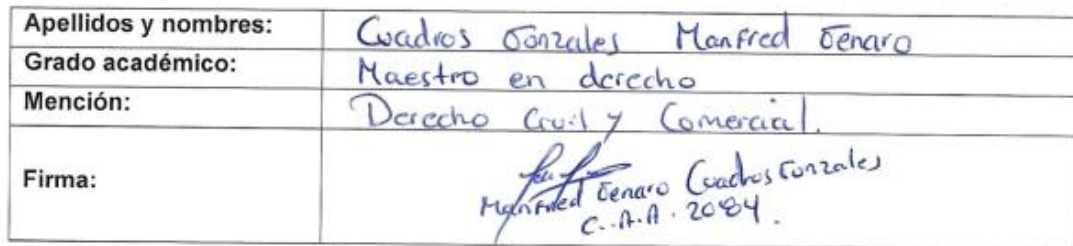 Apellidos y nombres: Cuadros Gonzales Manfred Genaro
Grado académico: Maestro en derecho
Mención: Derecho Civil y Comercial.
Firma: Manfred Genaro Cuadros Gonzales
C.A.A. 2084.